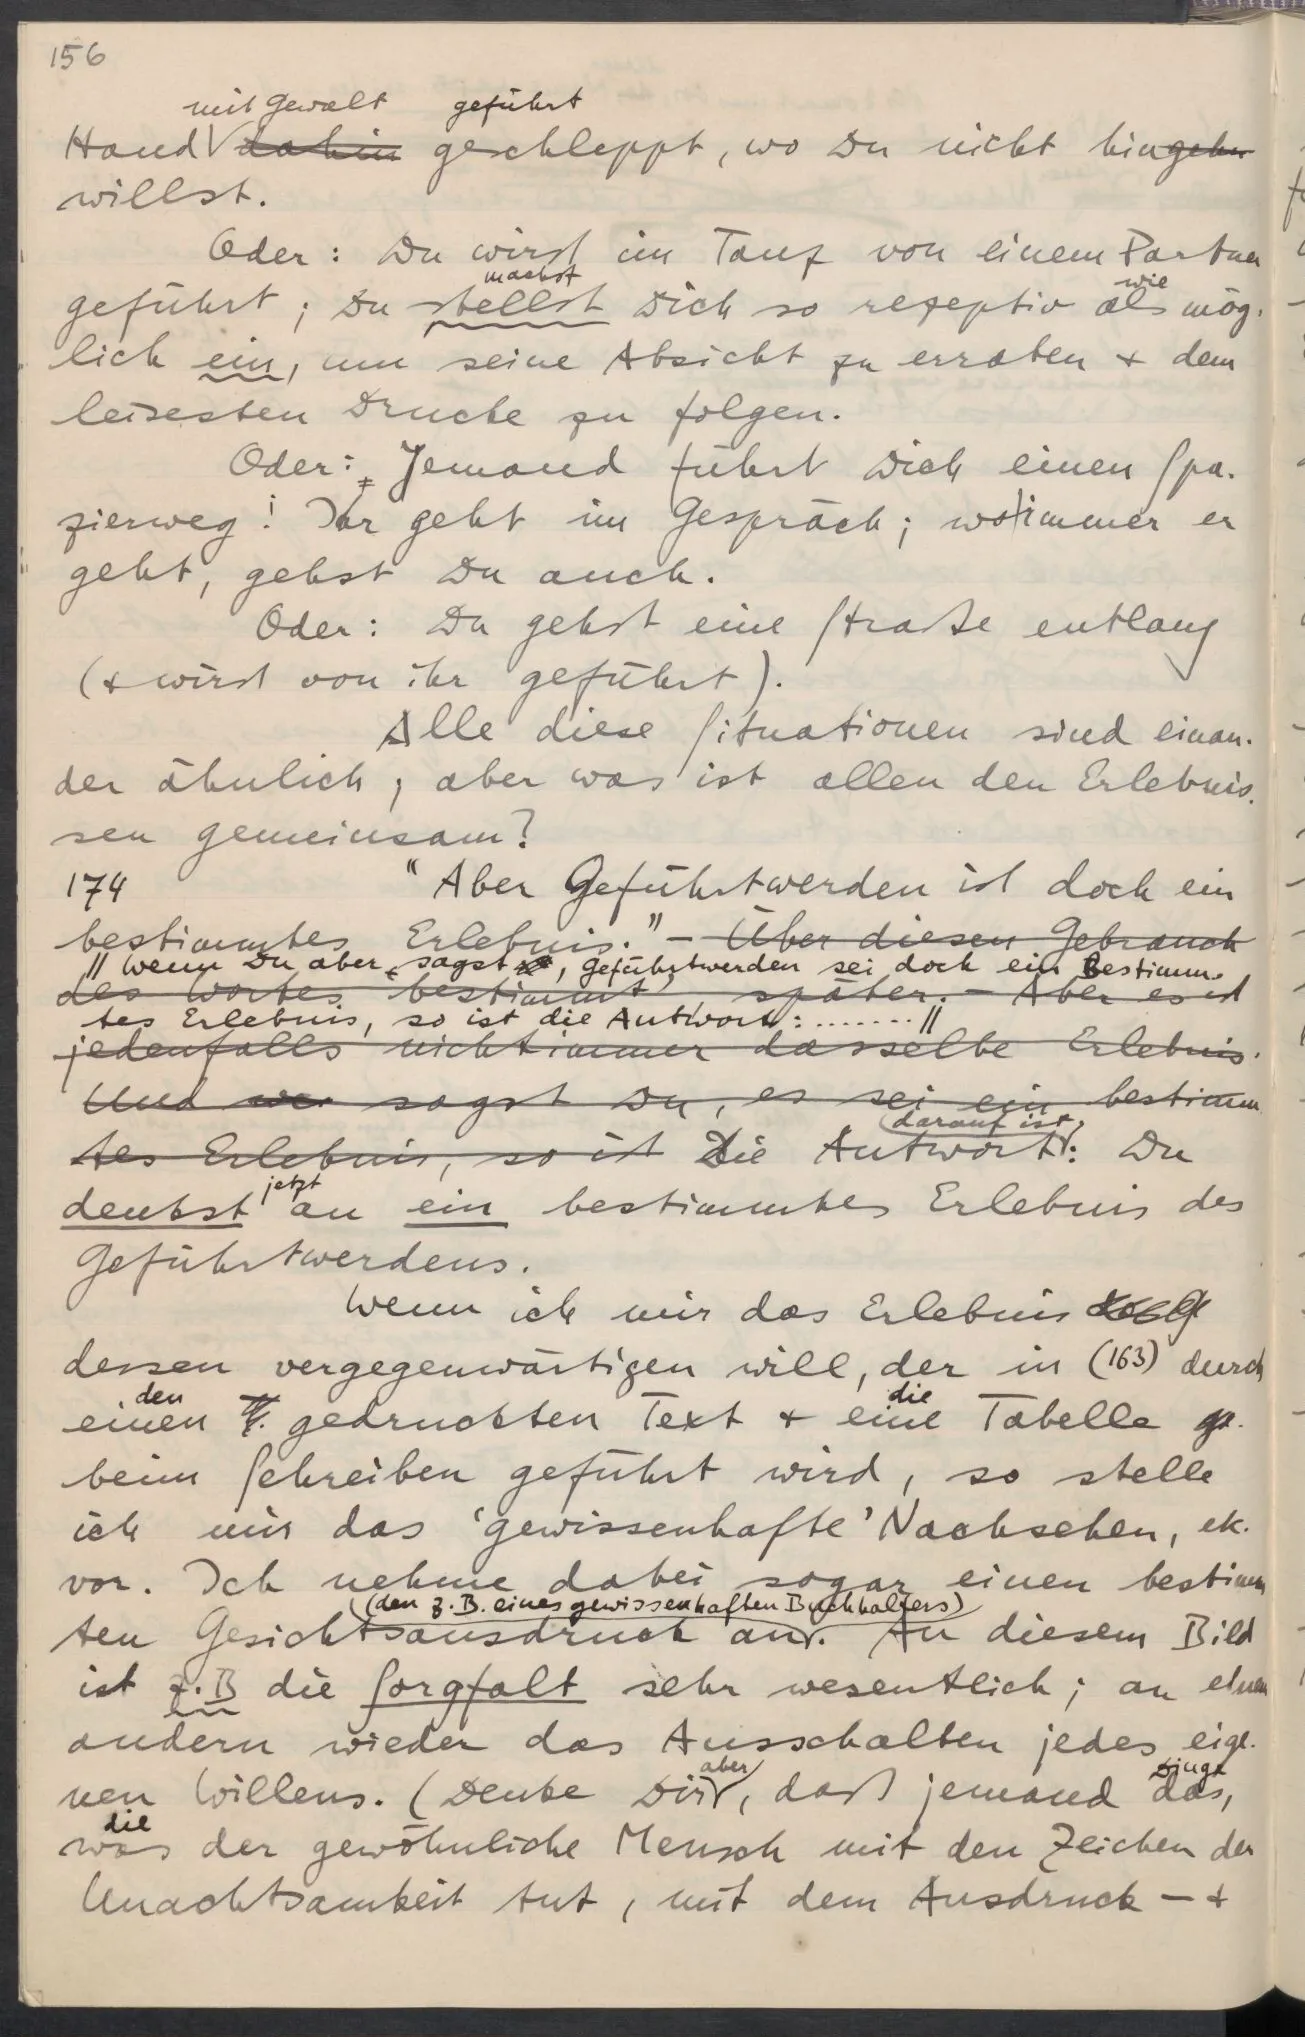 156
mit Gewalt geführt
Hand dahin geschleppt, wo Du nicht hingehn
willst.
Oder: Du wirst im Tanz von einem Partner
machst wie
geführt; Du stellst Dich so rezeptiv als mög-
lich ein, um seine Absicht zu erraten & dem
leisesten Drucke zu folgen.
Oder: Jemand führt Dich einen Spa-
zierweg! Ihr geht im Gespräch; wo immer er
geht, gehst Du auch.
Oder: Du gehst eine Straße entlang
(& wirst von ihr geführt).
Alle diese Situationen sind einan-
der ähnlich; aber was ist allen den Erlebnis-
sen gemeinsam?
174 "Aber Geführtwerden ist doch ein
bestimmtes Erlebnis." – Über diesen Gebrauch
// Wenn Du aber sagst, Geführtwerden sei doch ein Bestimm-
des Wortes 'bestimmt', später. – Aber es ist
tes Erlebnis, so ist die Antwort: ....... //
jedenfalls nicht immer dasselbe Erlebnis.
Und sagst Du, es sei ein bestimm-
darauf ist
tes Erlebnis, so ist Die Antwort: Du
jetzt
denkst an ein bestimmtes Erlebnis des
Geführtwerdens.
Wenn ich mir das Erlebnis des G
dessen vergegenwärtigen will, der in (163) durch
den die
einen T. gedruckten Text & eine Tabelle ge-
beim Schreiben geführt wird, so stelle
ich mir das 'gewissenhafte' Nachsehen, etc.
vor. Ich nehme dabei sogar einen bestimm-
(den z.B. eines gewissenhaften Buchhalters)
ten Gesichtsausdruck an. An diesem Bild
ist z.B die Sorgfalt sehr wesentlich; an einem
andern wieder das Ausschalten jedes eige-
aber Dinge
nen Willens. (Denke Dir, daß jemand das,
die
was der gewöhnliche Mensch mit den Zeichen der
Unachtsamkeit tut, mit dem Ausdruck – &